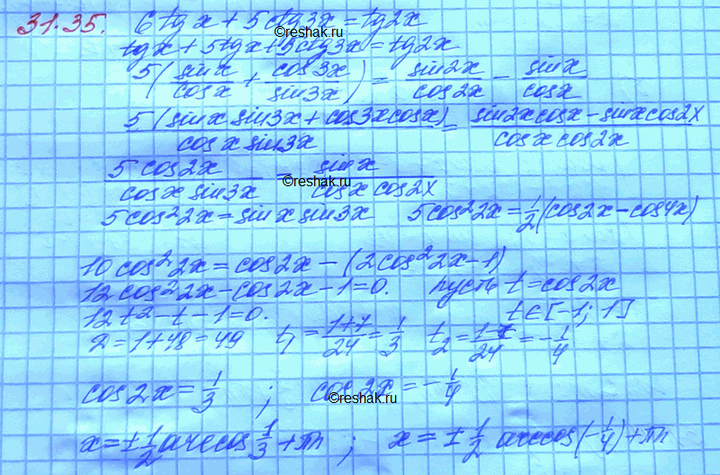 31.35. 6tg x + 5ctg3x = tg2x
tgx + 5tgx + 5ctg3x = tg2x
©reshak.ru
5(sinx/cosx + cos3x/sin3x) = sin2x/cos2x - sinx/cosx
5(sinx sin3x + cos3x cosx)/cosx sin3x = sin2x cosx - sinx cos2x/cosx cos2x
5 cos2x/cosx sin3x = sinx/cosx cos2x
©reshak.ru
5cos²2x = sinx sin3x 5cos²2x = 1/2(cos2x - cos4x)
10cos²2x = cos2x - (2cos²2x - 1)
12cos²2x - cos2x - 1 = 0. пусть t = cos2x
12t² - t - 1 = 0. t ∈ [-1; 1]
D = 1 + 48 = 49 t₁ = 1+7/24 = 1/3 t₂ = 1-7/24 = -1/4
cos2x = 1/3 ; cos2x = -1/4
©reshak.ru
x = ± 1/2 arccos 1/3 + πn ; x = ± 1/2 arccos(-1/4) + πn